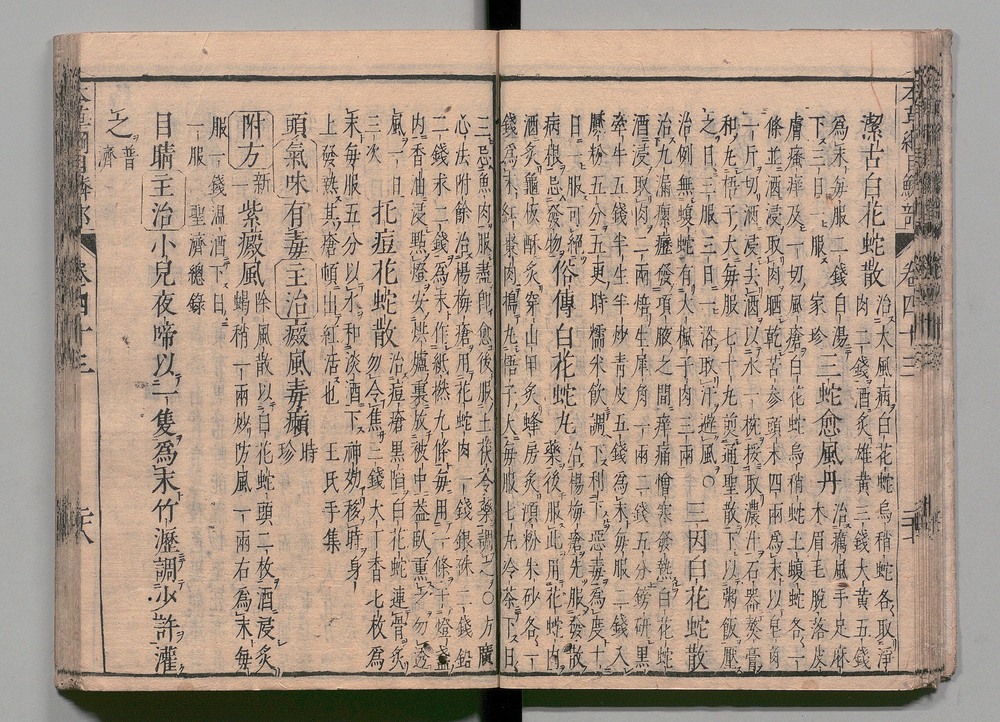 潔古白花蛇散 治大風病白花蛇烏稍蛇各取淨肉二錢酒炙雄黄三錢大黄五錢
為末毎服二錢白湯下三日一服 家珍 三蛇愈風丹 治癘風手足麻木眉毛脫落皮
膚瘙痒及一切風瘡白花蛇烏稍蛇土蝮蛇各一
條並酒浸取肉晒乾苦参頭末四兩為末以皂角
一斤切酒浸去酒以水一椀挼取濃汁石器熬膏
和丸梧子大毎服七十丸煎通聖散下以粥飯壓
之日三服三日一浴取汗避風○三因白花蛇散
治例無蝮蛇有大楓子肉三兩
治九漏瘰癧發項腋之間痒痛憎寒發熱白花蛇
酒浸取肉二兩焙生犀角一兩二錢五分鎊研黒
牽牛五錢半生半炒青皮五錢為末毎服二錢入
膩粉五分五更時糯米飲調下利下惡毒為度十
日一服可絕病根忌發物 俗傳白花蛇丸 治楊梅瘡先服發散藥後服此用花蛇肉
酒炙龜板酥炙穿山甲炙蜂房炙澒粉朱砂各一
錢為末紅棗肉搗丸梧子大毎服七丸冷茶下日
三忌魚肉服盡卽愈後服土茯苓藥調之○方廣
心法附餘治楊梅瘡用花蛇肉一錢銀珠二錢鉛
二錢汞二錢為末作紙撚九條毎用一條于燈盞
内香油浸點燈安烘爐裏放被中蓋臥熏之勿透
風一日三次 托痘花蛇散 治痘瘡黒陷白花蛇連骨炙勿令焦三錢大丁香七枚為
末毎服五分以水和淡酒下神效移時身
上發熱其瘡頓出紅活也 王氏手集
頭氣味有毒主治癜風毒癩 時珍
附方新一紫癜風 除風散以白花蛇頭二枚酒浸炙
蝎稍一兩炒防風一兩右為末毎
服一錢温酒下日一服 聖濟總錄
目睛主治小兒夜啼以一隻為末竹瀝調少許灌
之 普濟
卷四十三